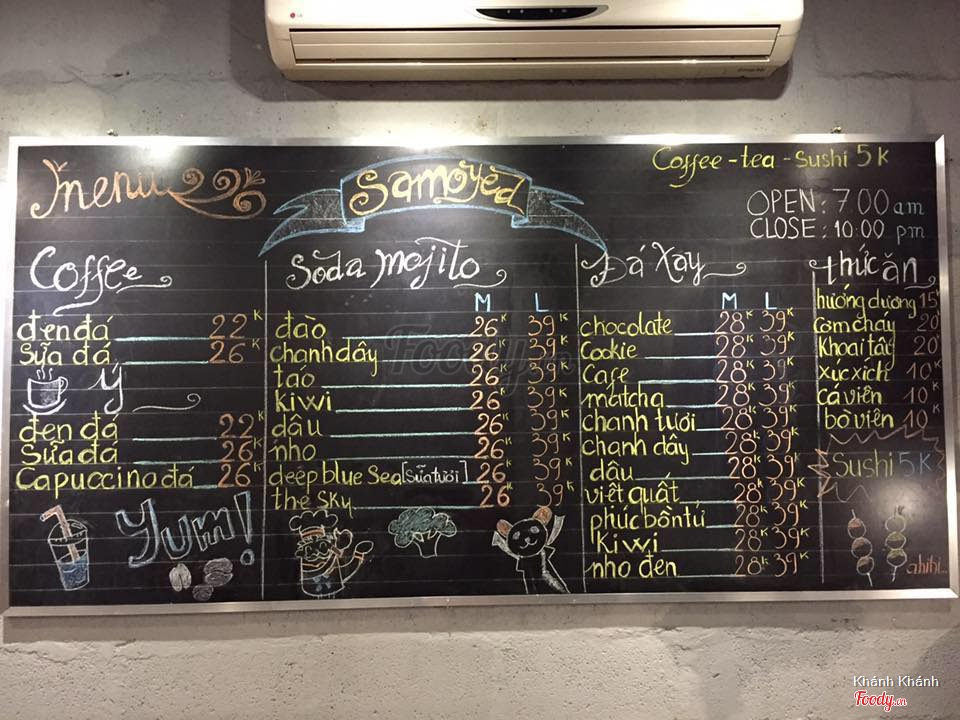 LG
Menu
Samoyed
Coffee - tea - Sushi 5K
OPEN : 7.00 am
CLOSE : 10:00 pm
Coffee
đen đá 22K
Sữa đá 26K
Ý
đen đá 22K
Sữa đá 26K
Cappuccino đá 26K
Yum!
Soda mojito
M L
đào 26K 39K
chanh dây 26K 39K
táo 26K 39K
kiwi 26K 39K
dâu 26K 39K
nho 26K 39K
deep blue Sea [Sữa tươi] 26K 39K
the SKy 26K 39K
Đá Xay
M L
chocolate 28K 39K
Cookie 28K 39K
Cafe 28K 39K
matcha 28K 39K
chanh tươi 28K 39K
chanh dây 28K 39K
dâu 28K 39K
việt quất 28K 39K
phúc bồn tử 28K 39K
kiwi 28K 39K
nho đen 28K 39K
thức ăn
hướng dương 15K
cơm cháy 20K
Khoai tây 20K
xúc xích 10K
cá viên 10K
bò viên 10K
Sushi 5K
ahihi..
Foody.vn
Khánh Khánh
Foody.vn